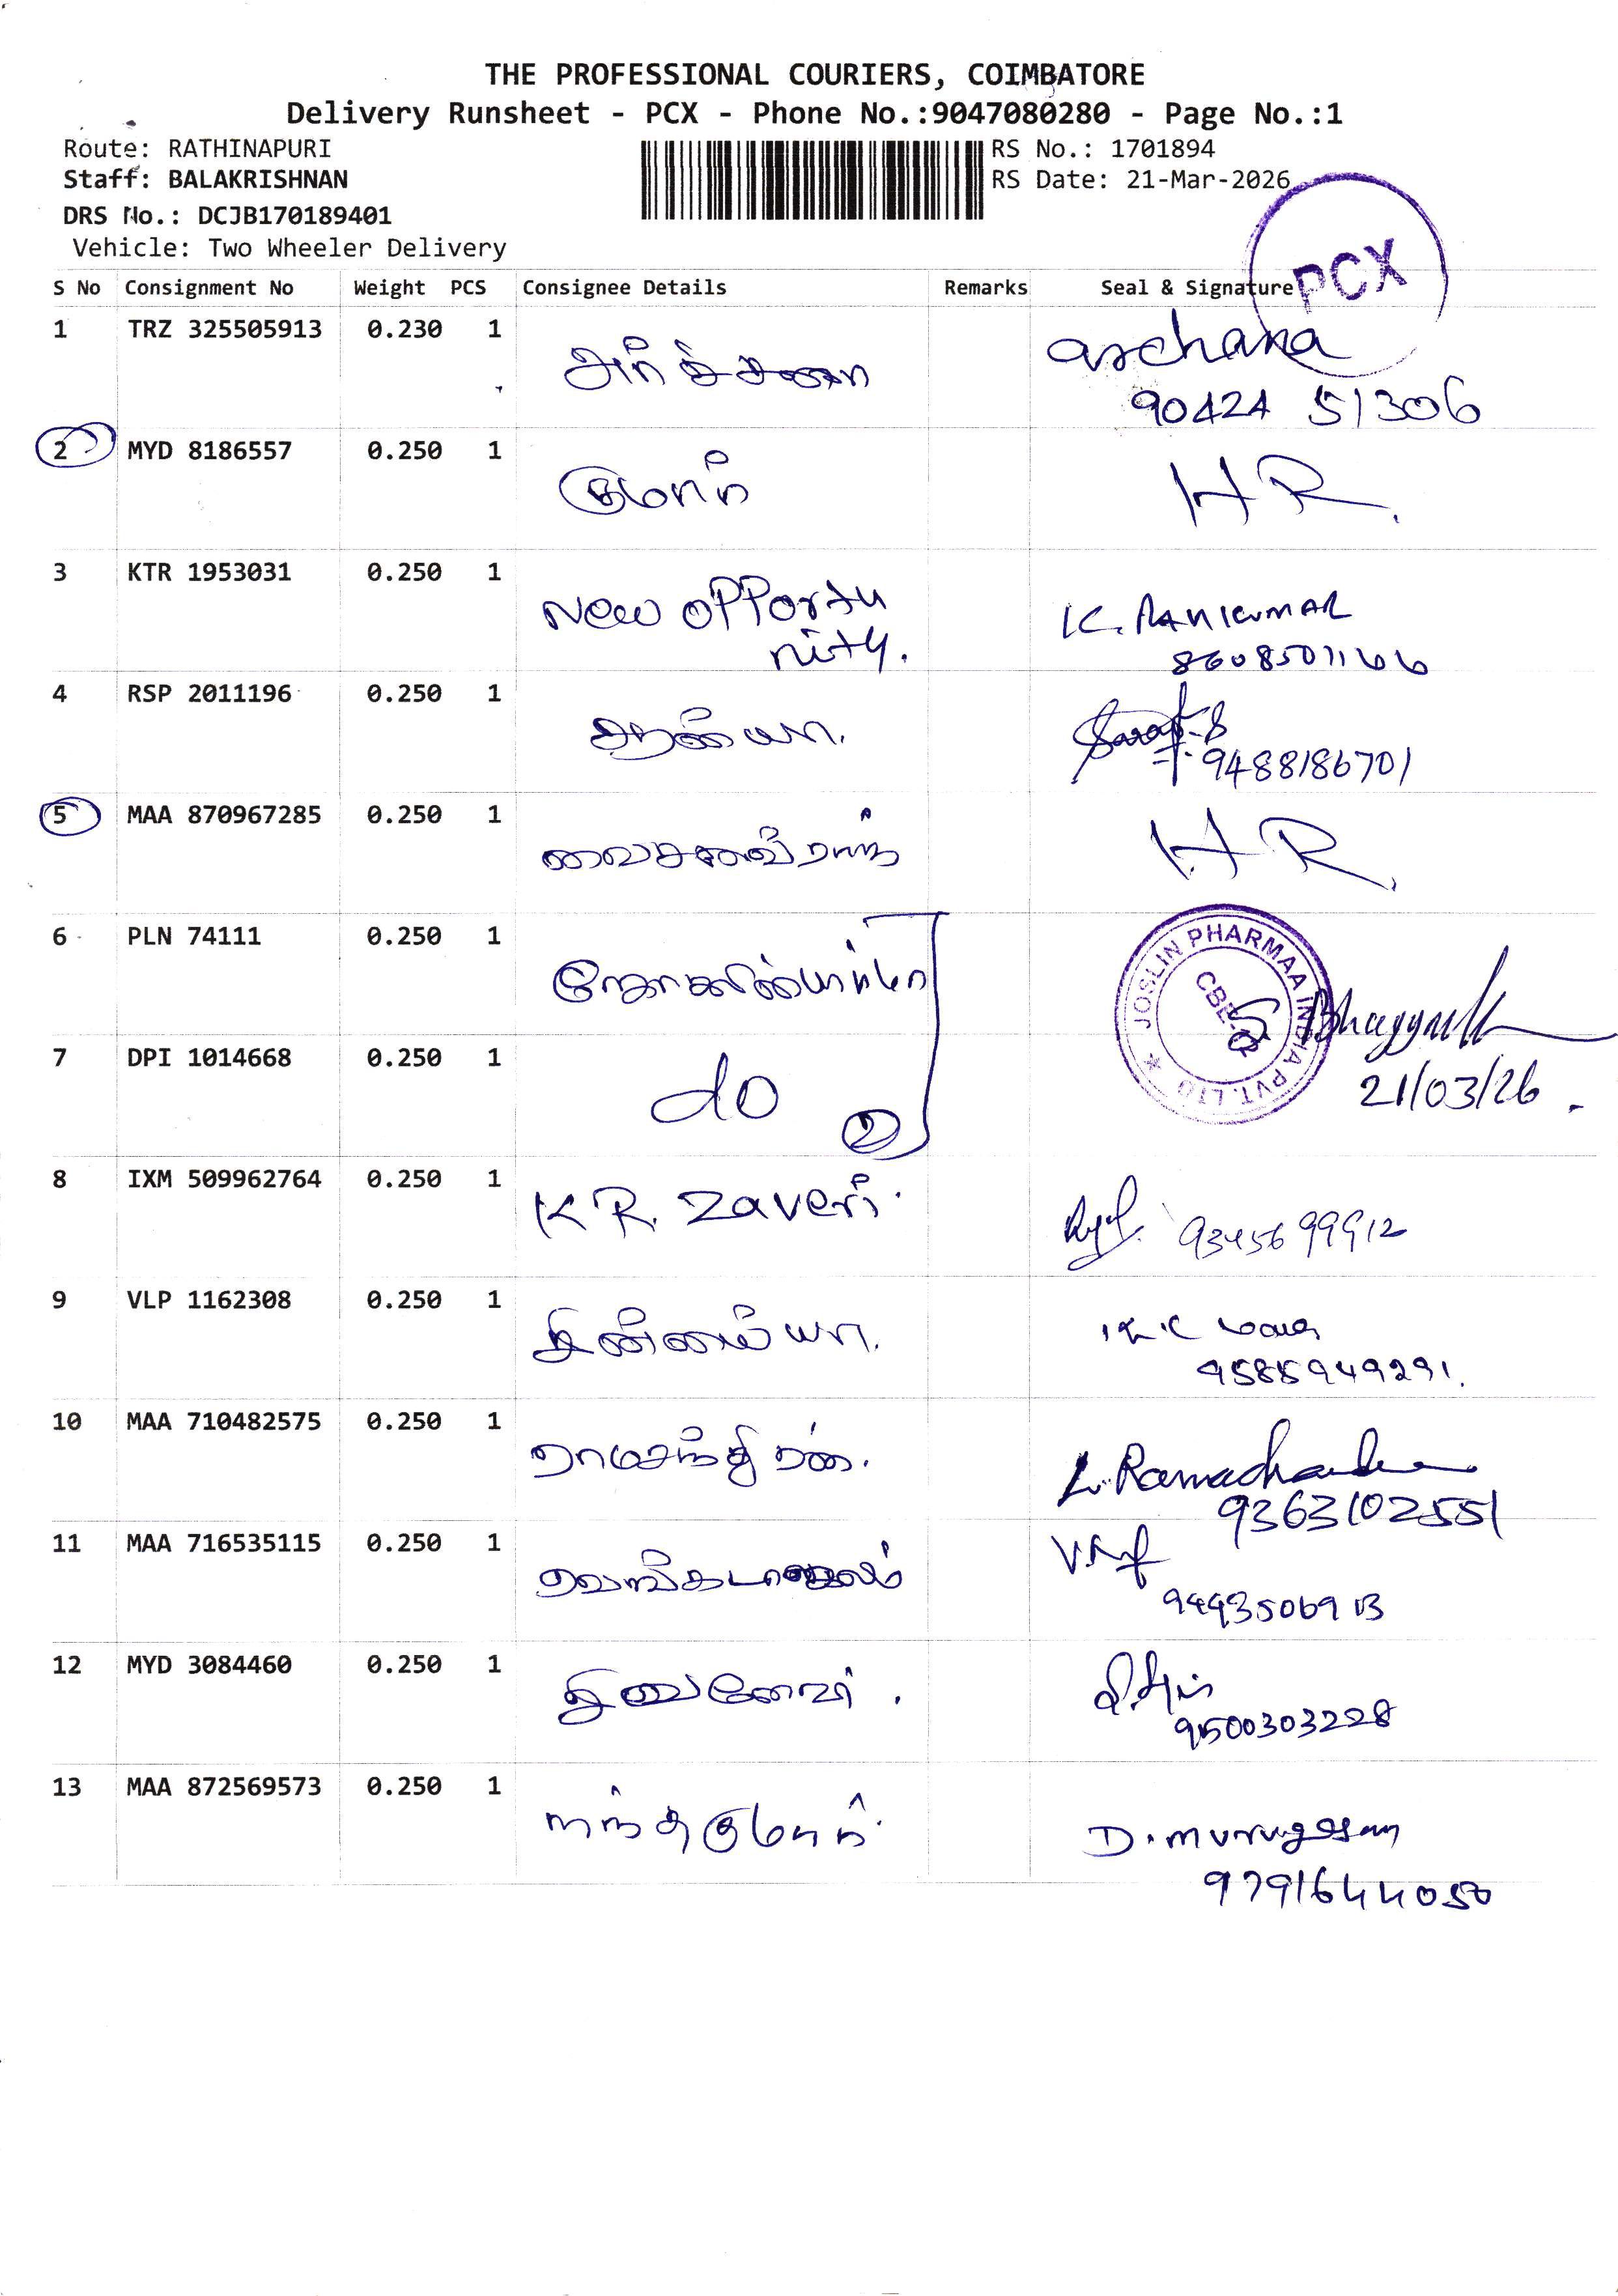 THE PROFESSIONAL COURIERS, COIMBATORE
Delivery Runsheet - PCX - Phone No.:9047080280 - Page No.:1
Route: RATHINAPURI
RS No.: 1701894
Staff: BALAKRISHNAN
RS Date: 21-Mar-2026
DRS No.: DCJB170189401
Vehicle: Two Wheeler Delivery
PCX
S No Consignment No Weight PCS Consignee Details Remarks Seal & Signature
1 TRZ 325505913 0.230 1 அர்ச்சனா archana
90424 51306
2 MYD 8186557 0.250 1 குமார் HR.
3 KTR 1953031 0.250 1 New opportu
nity. K. RAMKUMAR
8608501166
4 RSP 2011196 0.250 1
9488186701
5 MAA 870967285 0.250 1 HR.
6 PLN 74111 0.250 1
JOSLIN PHARMAA INDIA PVT. LTD
7 DPI 1014668 0.250 1 do
2
21/03/26.
8 IXM 509962764 0.250 1 K R. Zaveri. 9345699912
9 VLP 1162308 0.250 1
9585949291.
10 MAA 710482575 0.250 1 ராமசந்திரன். L. Ramachandra
9363102551
11 MAA 716535115 0.250 1
9443506913
12 MYD 3084460 0.250 1
9500303228
13 MAA 872569573 0.250 1 நந்தகுமார் D. murugesan
9791644050